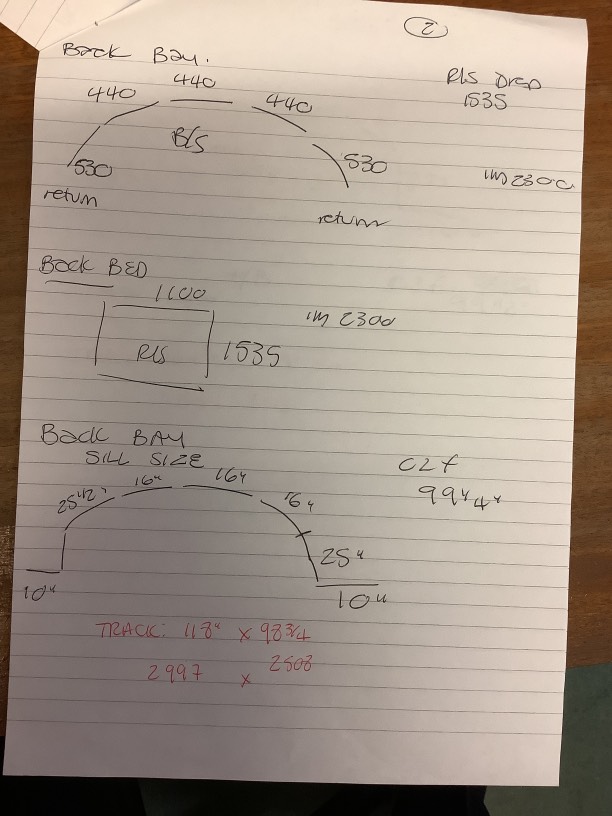 2
Back Bay.
Rls Drop
1535
440 440 440
B/S
530 530
1m 2300
return
return
Back BED
1100
1m 2300
Rls 1535
Back BAY
SILL SIZE
16" 16" 16"
25 1/2"
C2F
99" 4"
25"
10" 10"
TRACK: 118" x 98 3/4
2997 x 2508